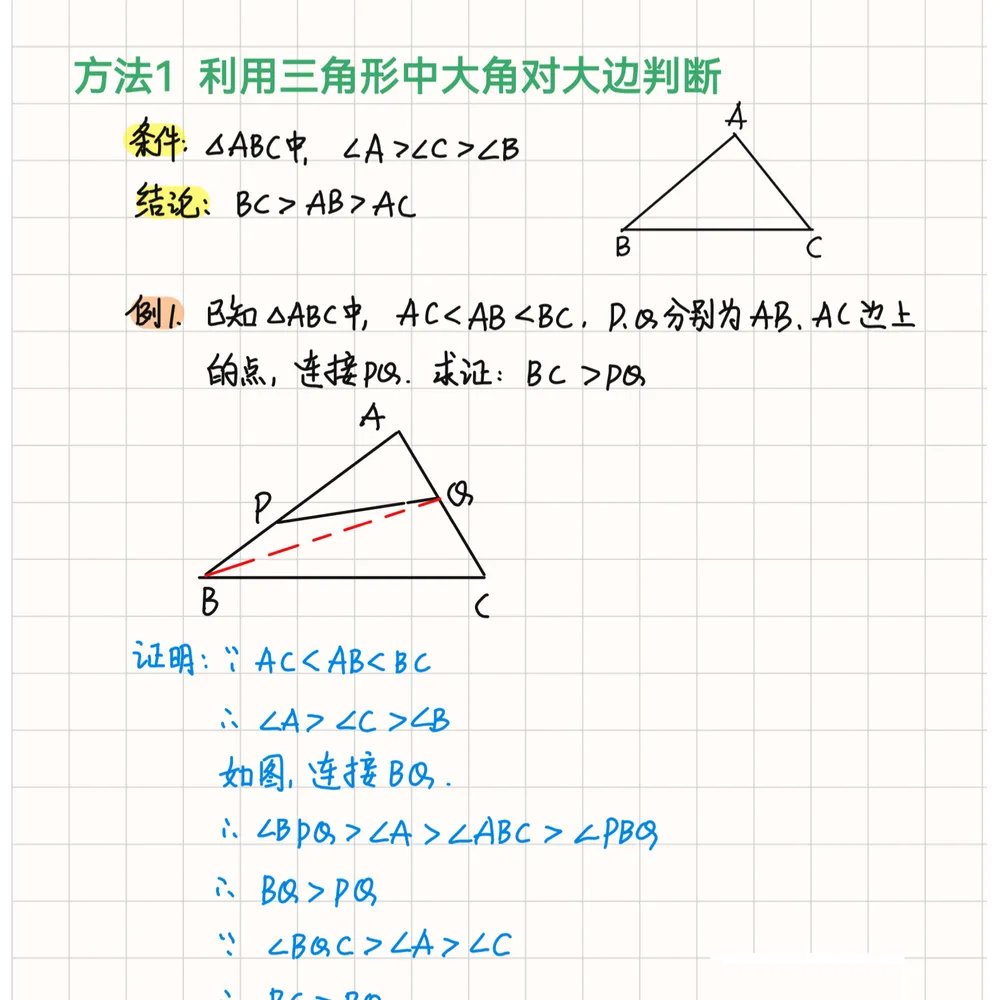 方法1 利用三角形中大角对大边判断
条件: △ABC中, ∠A>∠C>∠B
结论: BC>AB>AC
A
B
C
例1. 已知△ABC中, AC<AB<BC. P、Q分别为AB、AC边上
的点, 连接PQ. 求证: BC>PQ
A
P
Q
B
C
证明: ∵ AC<AB<BC
∴ ∠A>∠C>∠B
如图, 连接BQ.
∴ ∠BPQ>∠A>∠ABC>∠PBQ
∴ BQ>PQ
∵ ∠BQC>∠A>∠C
∴ BC>BQ